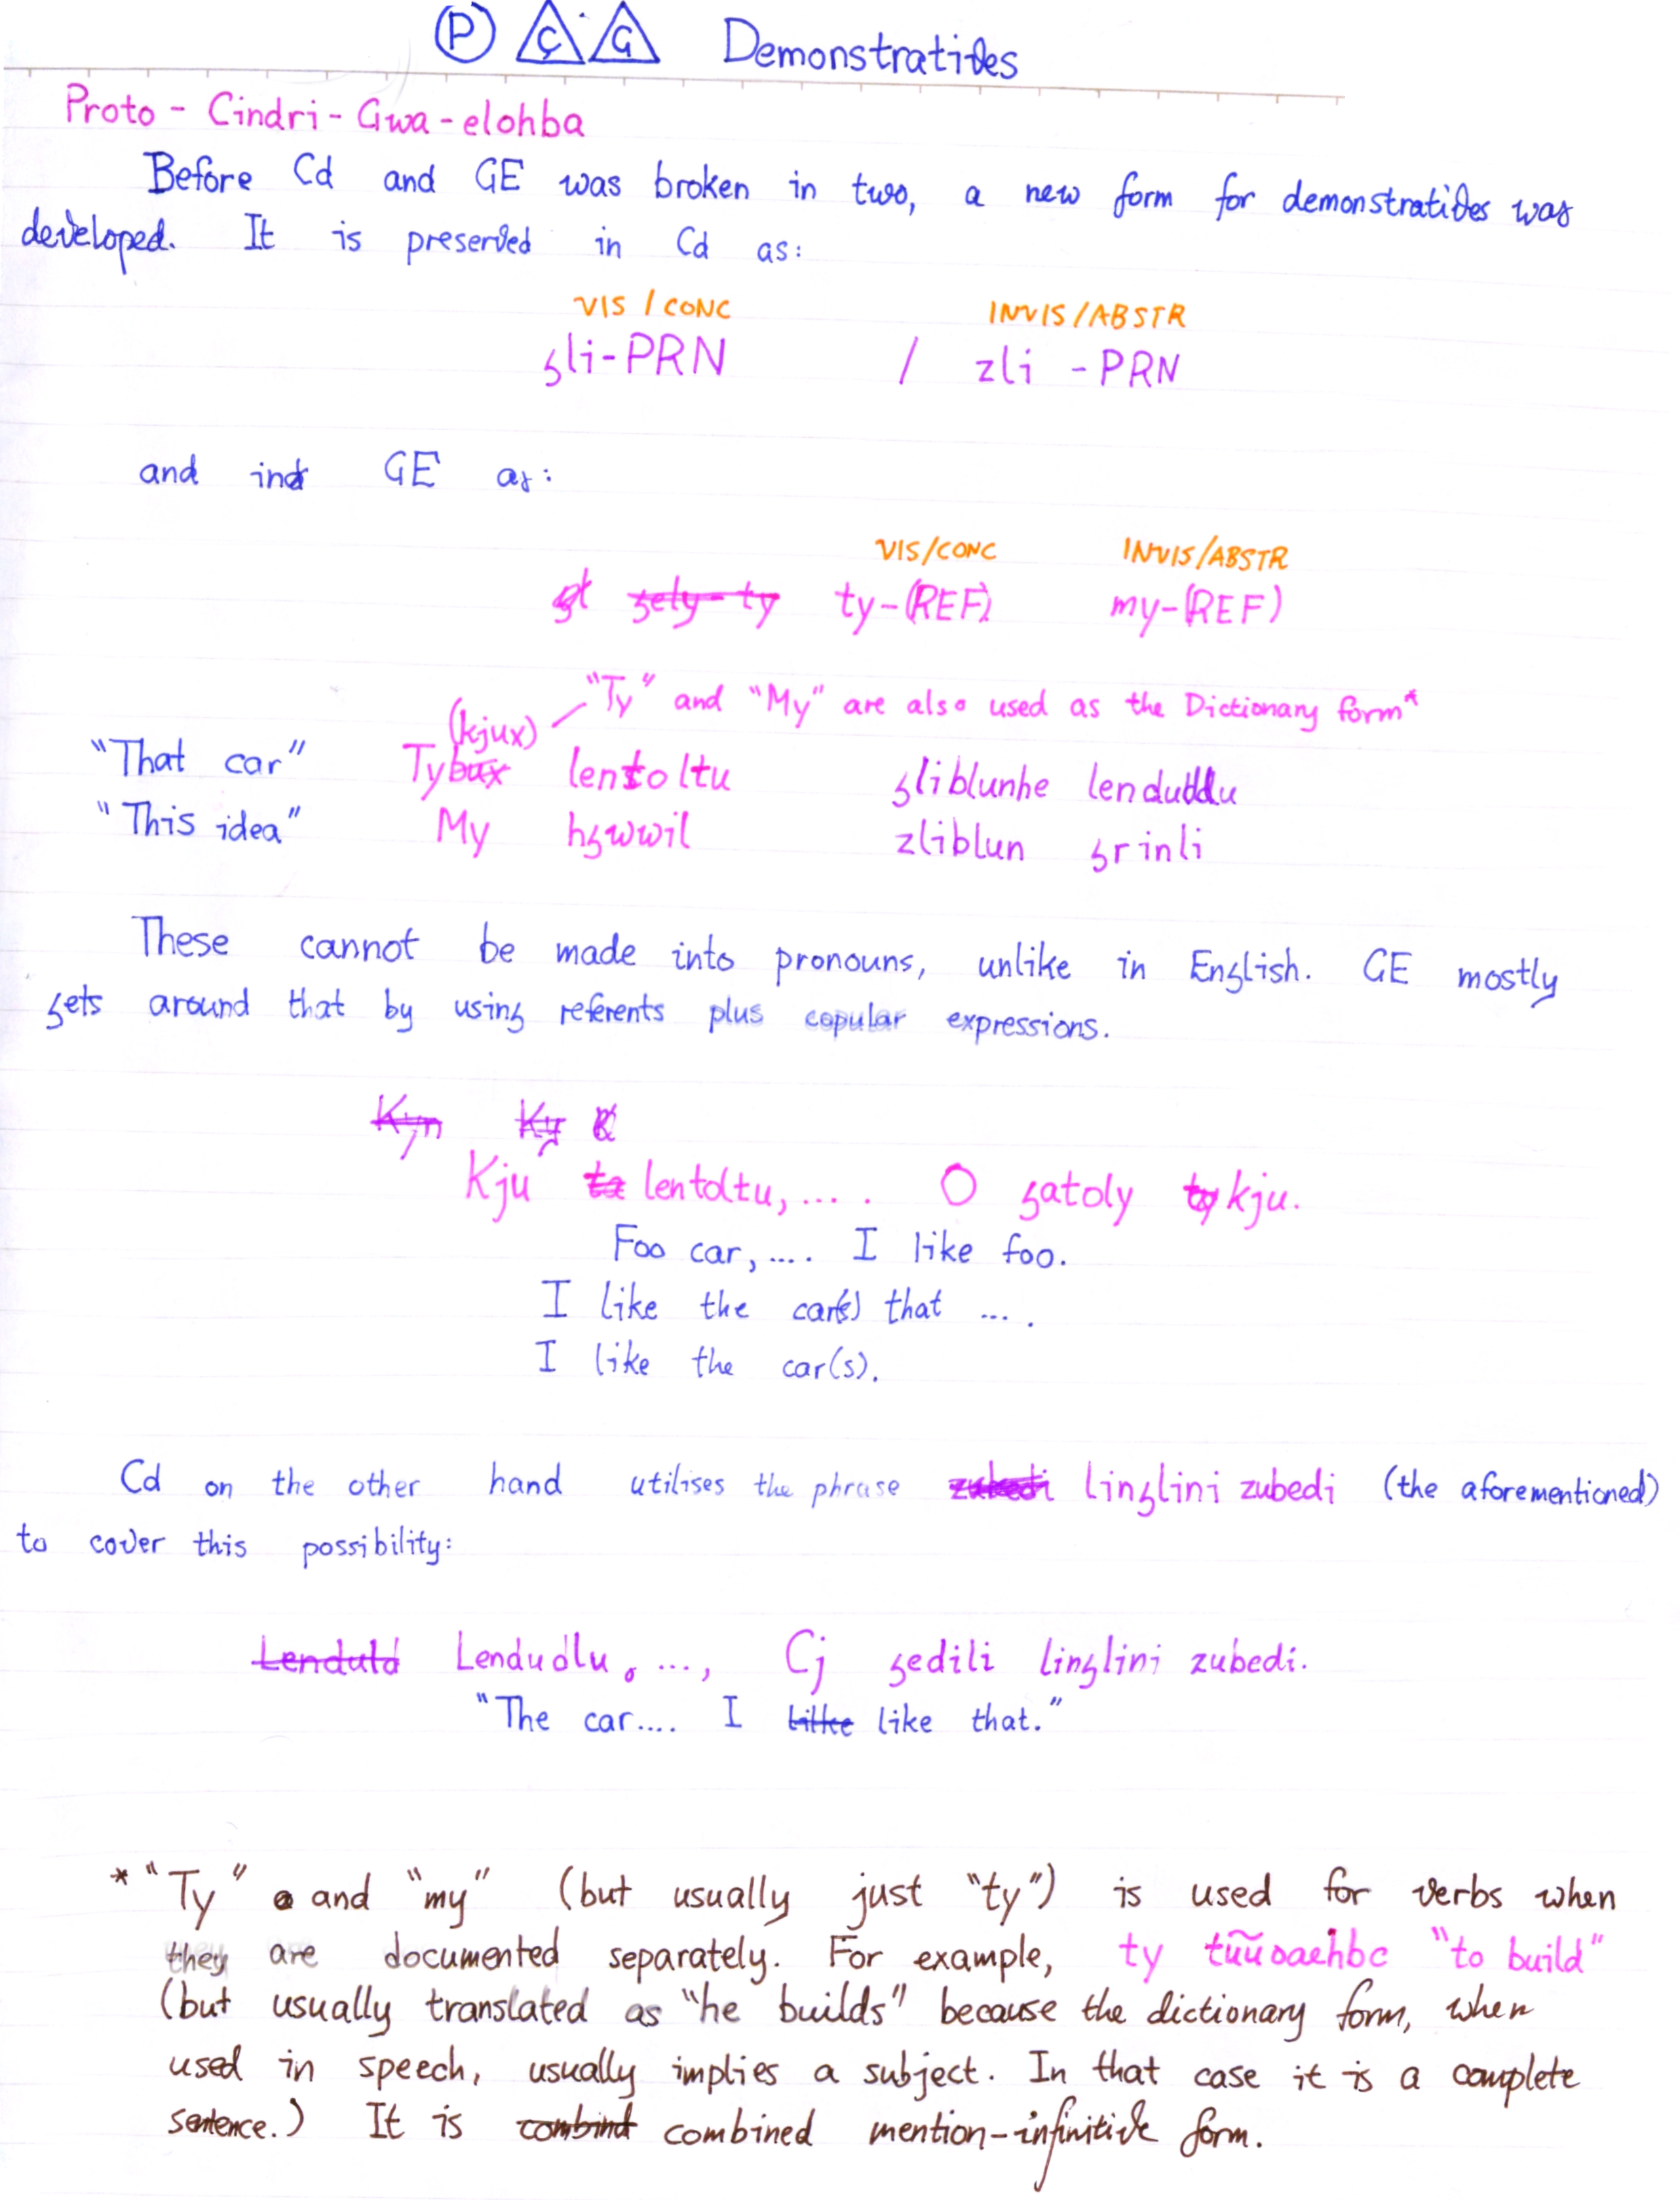 P Ç G Demonstratives
Proto-Cindri-Gwa-elohba
Before Cd and GE was broken in two, a new form for demonstratives was
developed. It is preserved in Cd as:
VIS/CONC INVIS/ABSTR
gli-PRN / zli-PRN
and in GE as:
VIS/CONC INVIS/ABSTR
ty-(REF) my-(REF)
"Ty" and "My" are also used as the Dictionary form*
(kjux)
"That car" Ty lentoltu gliblunhe lendudlu
"This idea" My hgwwil zliblun grinli
These cannot be made into pronouns, unlike in English. GE mostly
gets around that by using referents plus copular expressions.
Kju lentoltu, .... O gatoly kju.
Foo car, .... I like foo.
I like the car(s) that ... .
I like the car(s).
Cd on the other hand utilises the phrase linglini zubedi (the aforementioned)
to cover this possibility:
Lendudlu, ..., Cj gedili linglini zubedi.
"The car.... I like that."
* "Ty" and "my" (but usually just "ty") is used for verbs when
they are documented separately. For example, ty "to build"
(but usually translated as "he builds" because the dictionary form, when
used in speech, usually implies a subject. In that case it is a complete
sentence.) It is combined mention-infinitive form.